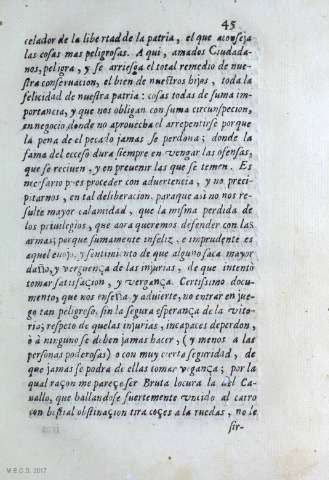 45
celador de la libertad de la patria, el que aconseja
las cosas mas peligrosas. A qui, amades Ciudada-
nos, peligra, y se arriesga el total remedio de nue-
stra conseruacion, el bien de nuestros hijos, toda la
felicidad de nuestra patria: cosas todas de suma im-
portancia, y que nos obligan con suma circunspecion,
en negocio donde no aprouecha el arrepentirse porque
la pena de el pecado jamas se perdona; donde la
fama del exceso dura siempre en vengar las ofensas,
que se reciuen, y en preuenir las que se temen. Es
necesario pues proceder con aduertencia, y no preci-
pitarnos, en tal deliberacion, paraque asi no nos re-
sulte mayor calamidad, que la misma perdida de
los priuilegios, que aora queremos defender con las
armas; porque sumamente infeliz, e imprudente es
aquel enojo, y sentimiento de que alguno saca mayor
daño, y verguença de las injurias, de que intentò
tomar satisfacion, y vergança. Certissimo docu-
mento, que nos enseña, y aduierte, no entrar en jue-
go tan peligroso, sin la segura esperança de la vito-
ria; respeto de quelas injurias, incapaces deperdon,
ò à ninguno se deben jamas hacer, (y menos a las
personas poderosas) o con muy cierta seguridad, de
que jamas se podra de ellas tomar vigança; por la
qual raçon me pareçe ser Bruta locura la del Ca-
uallo, que hallandose fuertemente vncido al carro
con bestial obstinaçion tira coçes a la ruedas, no le
sir-
M.E.C.D. 2017